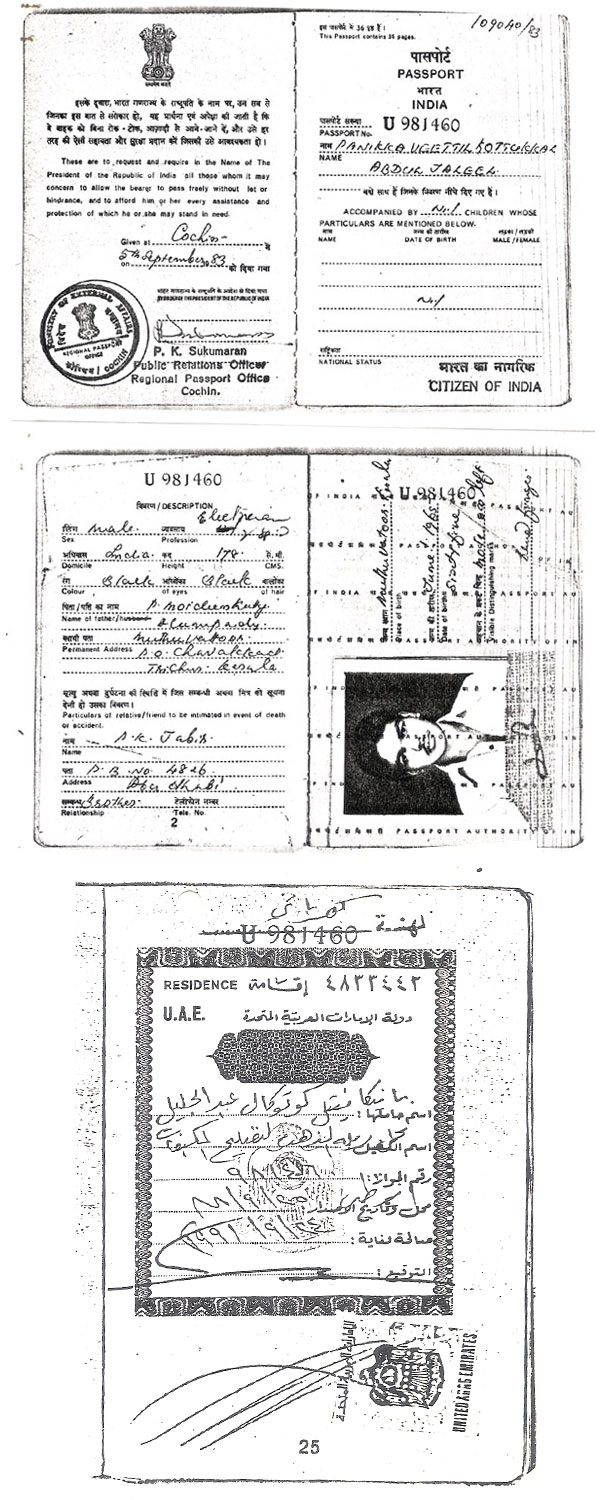 109040/83
इस पासपोर्ट में 36 पृष्ठ हैं।
This Passport contains 36 pages.
सत्यमेव जयते
इसके द्वारा, भारत गणराज्य के राष्ट्रपति के नाम पर, उन सब से
जिनका इस बात से सरोकार हो, यह प्रार्थना एवं अपेक्षा की जाती है कि
वे वाहक को बिना रोक-टोक, आज़ादी से आने-जाने दें, और उसे हर
तरह की ऐसी सहायता और सुरक्षा प्रदान करें जिसकी उसे आवश्यकता हो।
These are to request and require in the Name of The
President of the Republic of India all those whom it may
concern to allow the bearer to pass freely without let or
hindrance, and to afford him or her every assistance and
protection of which he or she may stand in need.
Given at Cochin में
on 5th September, 83 को दिया गया
भारत गणराज्य के राष्ट्रपति के आदेश से दिया गया
BY ORDER OF THE PRESIDENT OF THE REPUBLIC OF INDIA
MINISTRY OF EXTERNAL AFFAIRS
REGIONAL PASSPORT
OFFICE
COCHIN
P. K. Sukumaran
Public Relations Officer
Regional Passport Office
Cochin.
पासपोर्ट
PASSPORT
भारत
INDIA
पासपोर्ट संख्या
PASSPORT No. U 981460
नाम PANIKKAVEETTIL KOTTUKKAL
NAME
ABDUL JALEEL
बच्चे साथ हैं जिनके विवरण नीचे दिए गए हैं।
ACCOMPANIED BY Nil CHILDREN WHOSE
PARTICULARS ARE MENTIONED BELOW-
नाम जन्म की तारीख लड़का/लड़की
NAME DATE OF BIRTH MALE/FEMALE
Nil
राष्ट्रिकता
NATIONAL STATUS
भारत का नागरिक
CITIZEN OF INDIA
U 981460
विवरण/DESCRIPTION
Electrician
लिंग Male व्यवसाय
Sex Profession
अधिवास India कद 178 से.मी.
Domicile Height CMS.
रंग Black आंखों का Black बालों का
Colour of eyes of hair
पिता/पति का नाम P. Moideenkutty
Name of father/husband
स्थायी पता Muthuvatoor
Permanent Address P.O. Chavakkad
Trichur Kerala
मृत्यु अथवा दुर्घटना की स्थिति में जिस सम्बन्धी अथवा मित्र को सूचना
देनी हो उसका विवरण।
Particulars of relative/friend to be intimated in event of death
or accident.
नाम P.K. Jabir
Name
पता P.B. No 4826
Address Abu dhabi
सम्बन्ध Brother टेलीफोन नम्बर
Relationship Tele. No.
2
U 981460
Muthuvatoor Kerala
जन्म स्थान
Place of birth
जन्म की तारीख
Date of births
Visible Distinguishing marks
PASSPORT AUTHORITY OF IN
لمهنة
U 981460
RESIDENCE إقامة ٤٨٣٣٤٤٢
U.A.E. دولة الإمارات العربية المتحدة
بانيكا فيتل كوتوكال عبد الجليل
اسم حاملها :
اسم الكفيل
رقم الجواز :
محل وتاريخ الإصدار
صالحة لغاية :
التوقيع :
الإمارات العربية المتحدة
UNITED ARAB EMIRATES
25